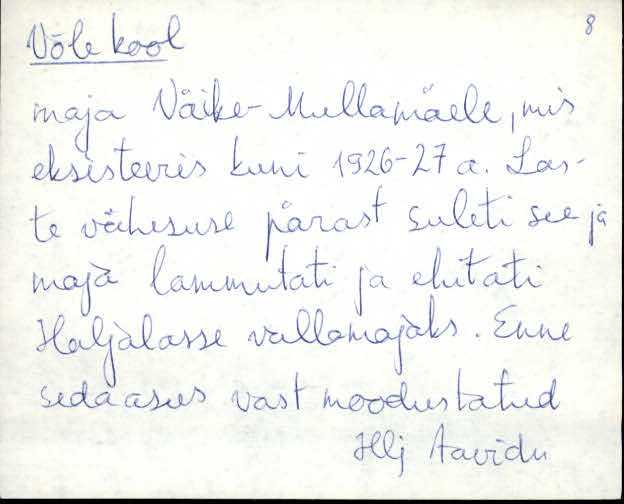 8
Võle kool
maja Väike-Mullamäele, mis
eksisteeris kuni 1926-27 a. Las-
te vähesuse pärast suleti see ja
maja lammutati ja ehitati
Haljalasse vallamajaks. Enne
seda asus vast moodustatud
Hlj Aavidu